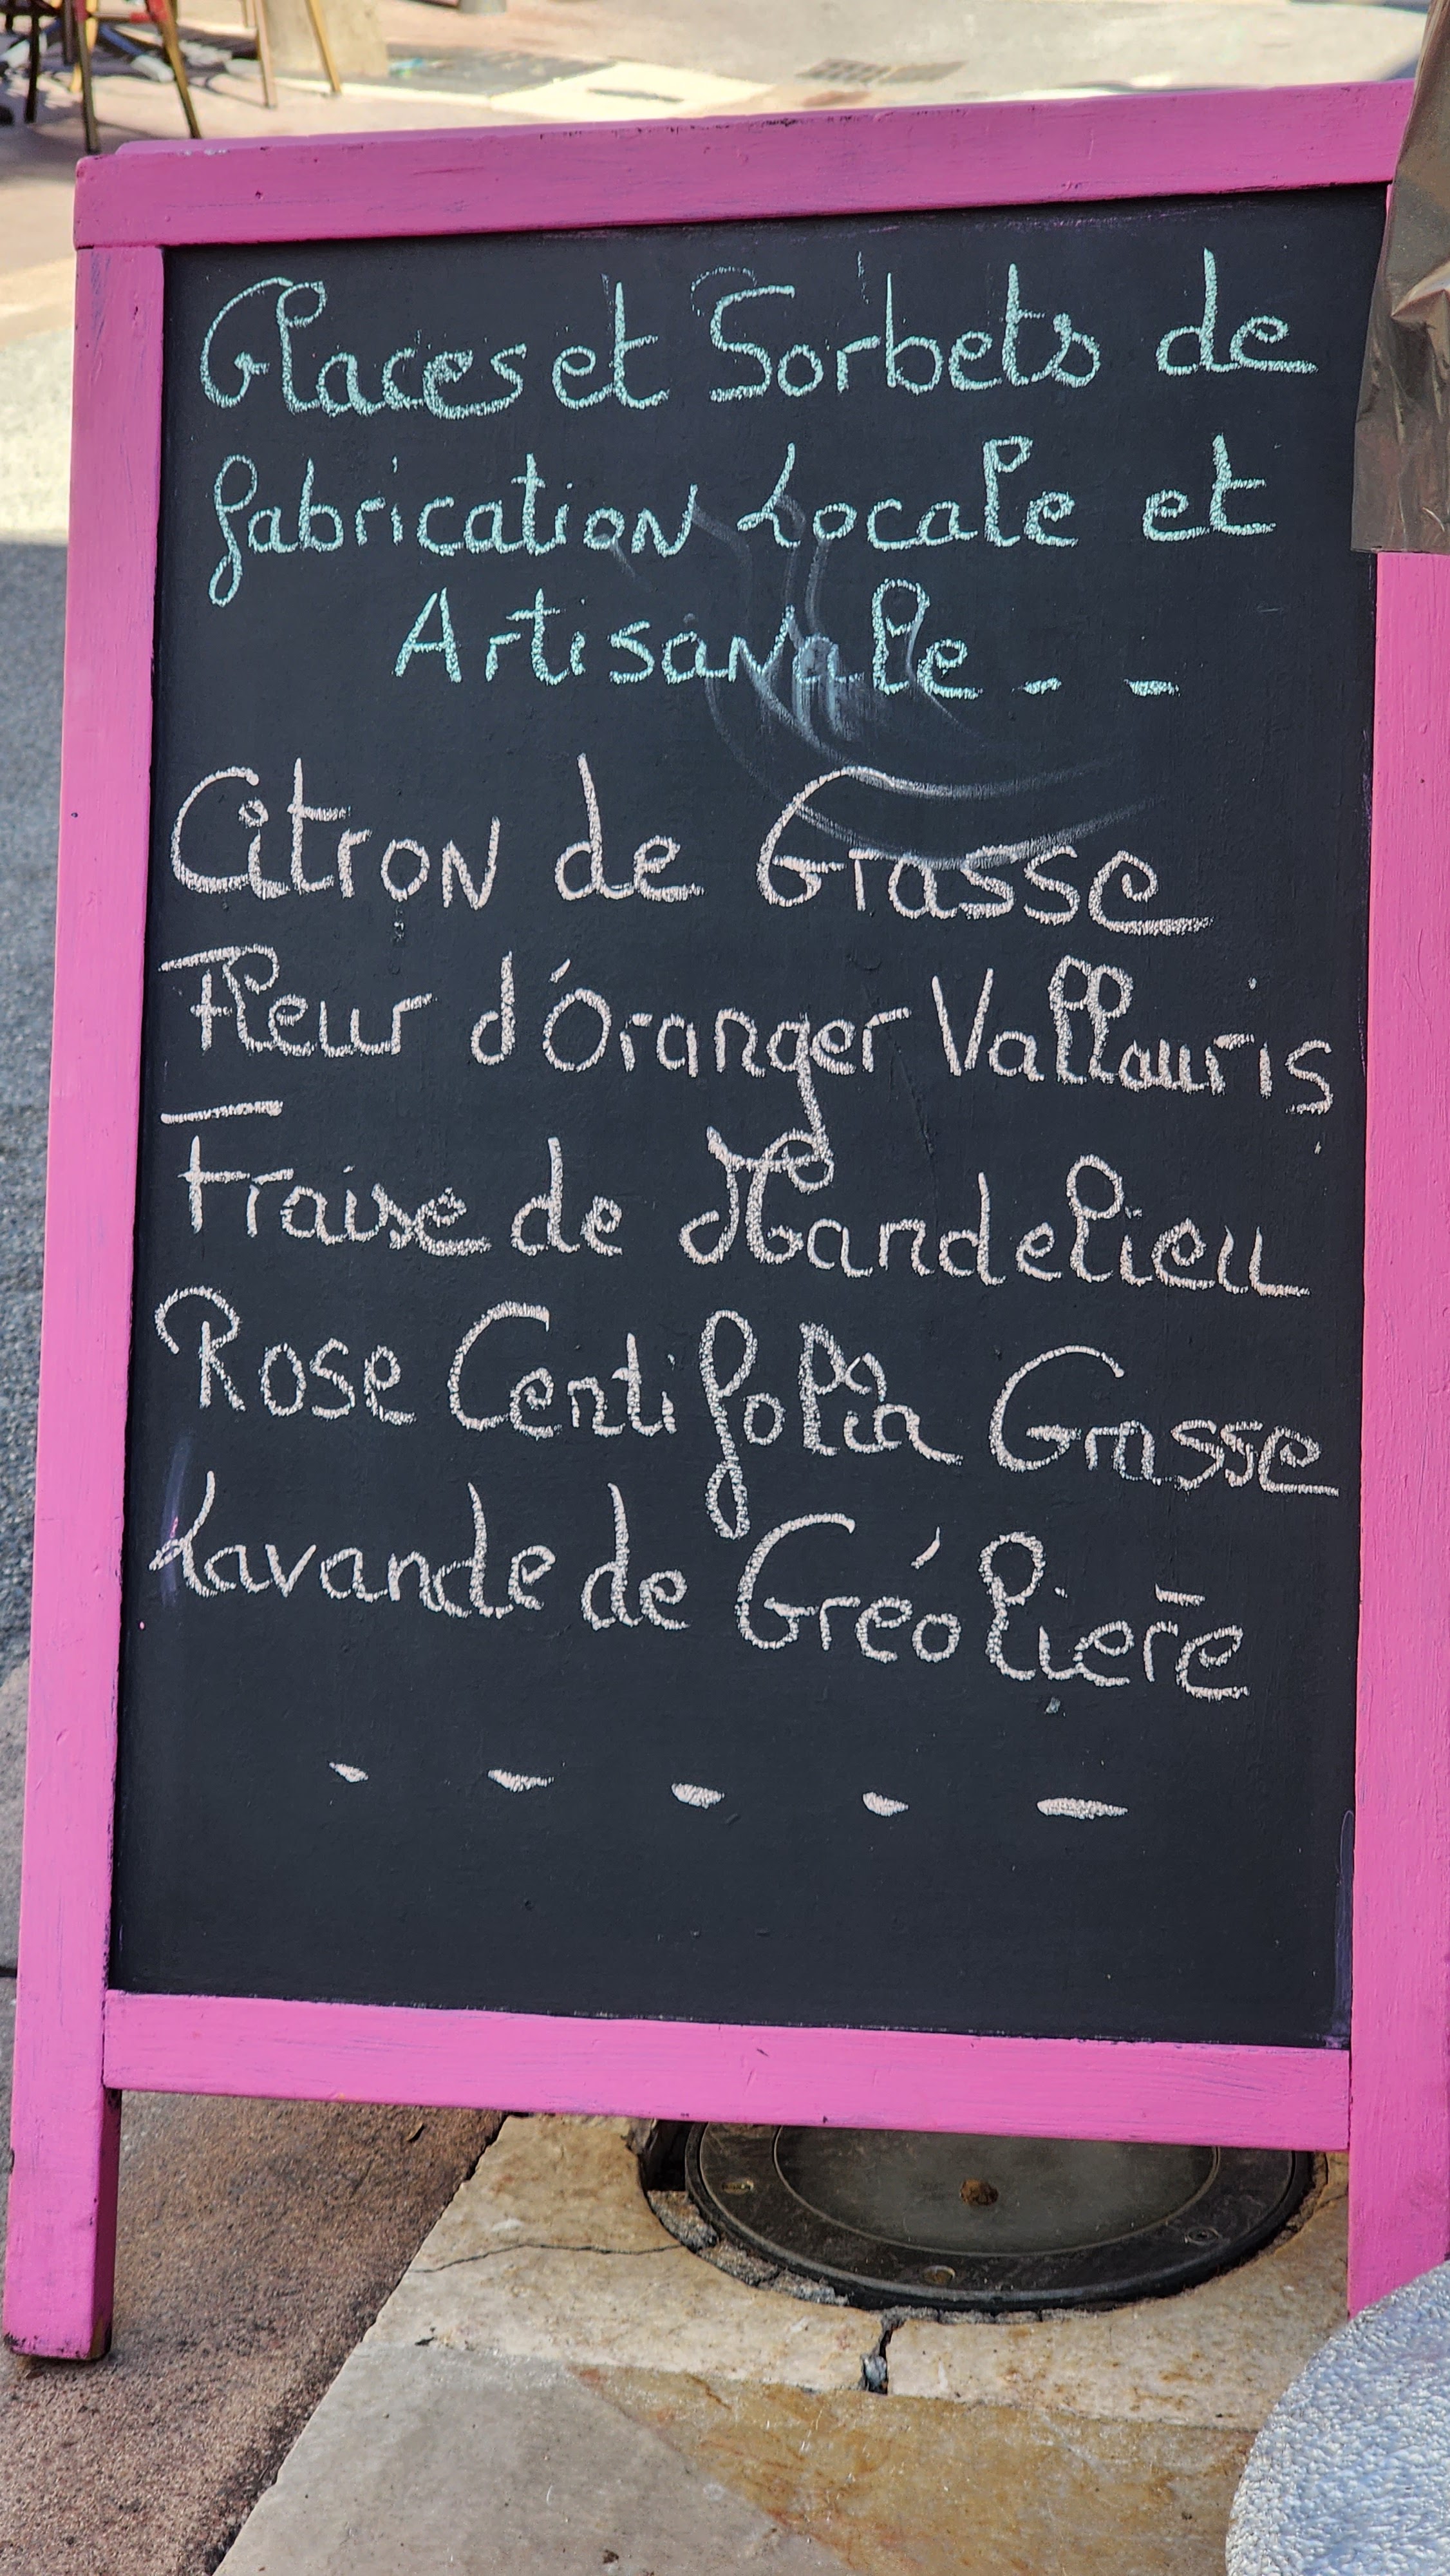 Glaces et Sorbets de
fabrication Locale et
Artisanale - -
Citron de Grasse
Fleur d'Oranger Vallauris
Fraise de Mandelieu
Rose Centifolia Grasse
Lavande de Gréolière
- - - - -